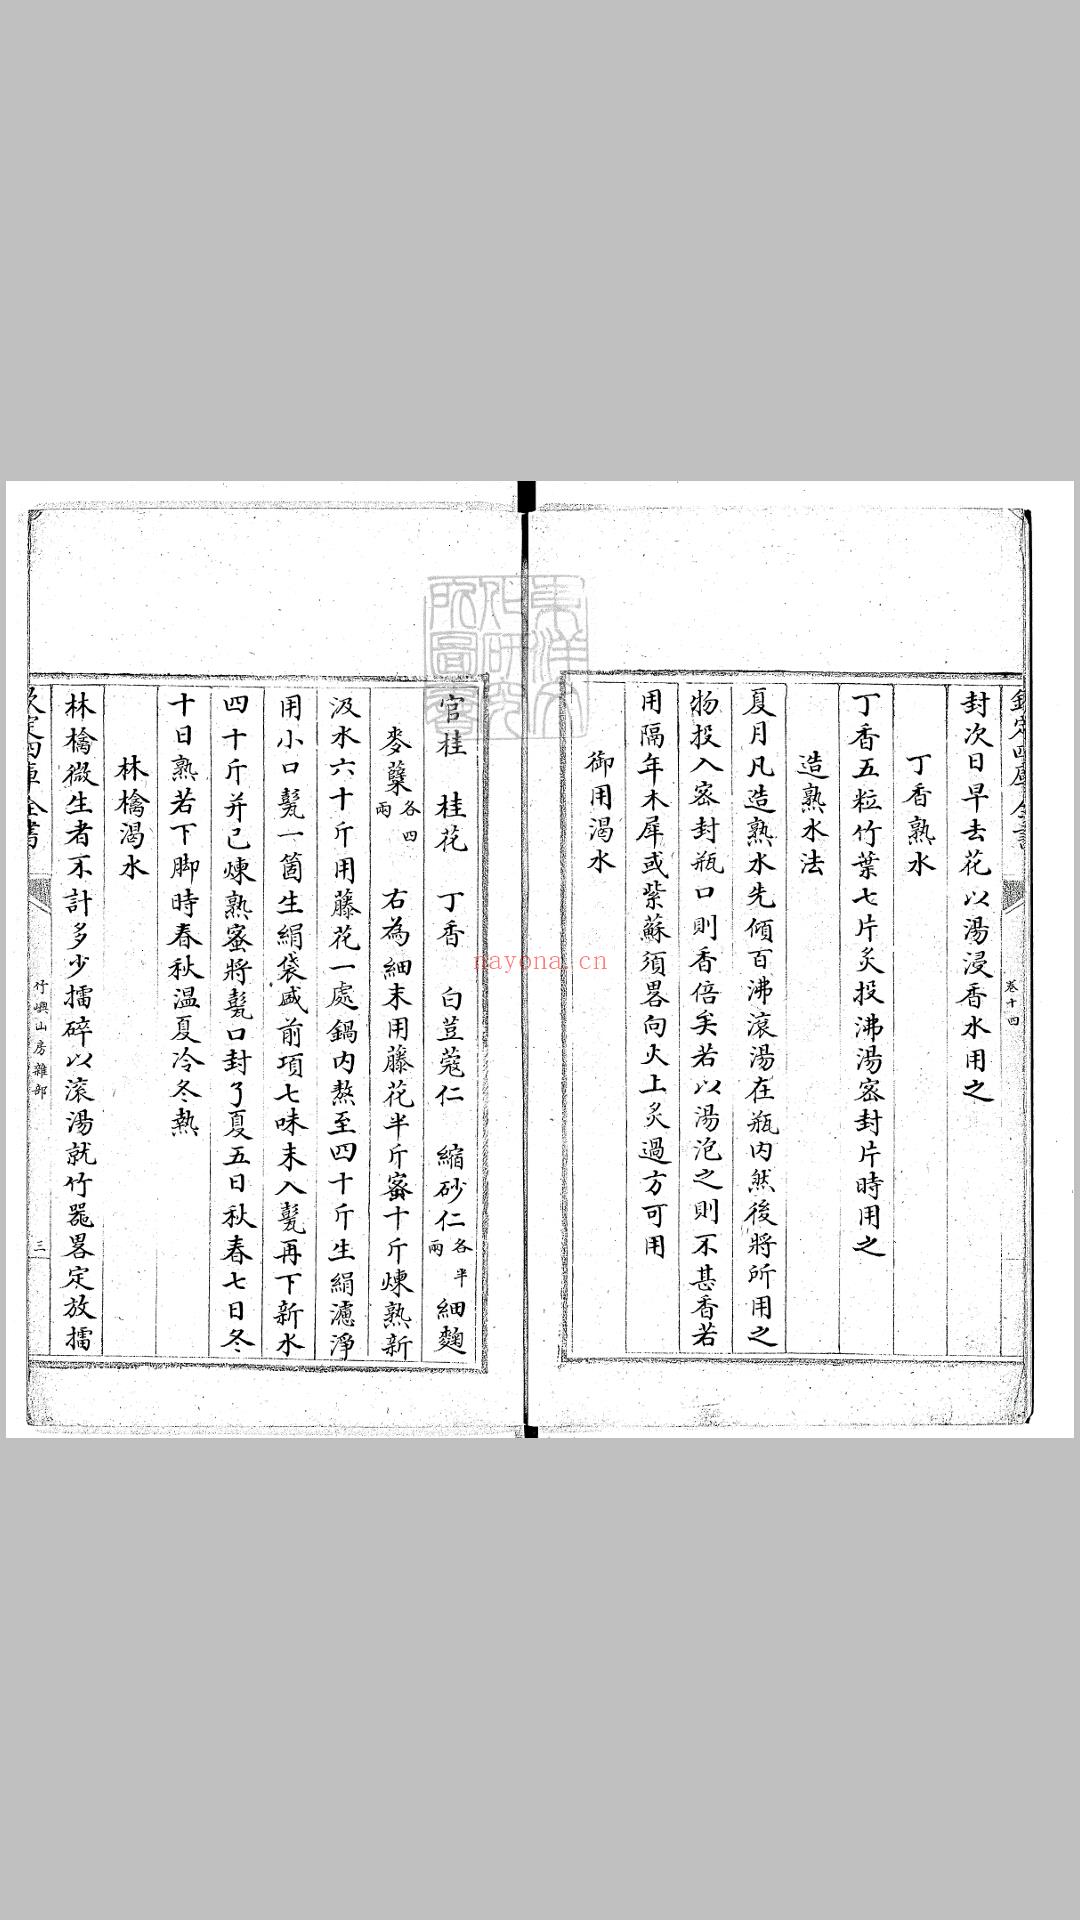 欽定四庫全書
卷十四
封次日早去花以湯浸香水用之
丁香熟水
丁香五粒竹葉七片炙投沸湯密封片時用之
造熟水法
夏月凡造熟水先傾百沸滾湯在瓶内然後將所用之
物投入密封瓶口則香倍矣若以湯泡之則不甚香若
用隔年木犀或紫蘇須畧向火上炙過方可用
御用渴水
官桂 桂花 丁香 白荳蔻仁 縮砂仁各半兩 細麴
麥蘖各四兩 右為細末用藤花半斤蜜十斤煉熟新
汲水六十斤用藤花一處鍋内熬至四十斤生絹濾淨
用小口甏一箇生絹袋盛前項七味末入甏再下新水
四十斤并已煉熟蜜將甏口封了夏五日秋春七日冬
十日熟若下脚時春秋温夏冷冬熱
林檎渴水
林檎微生者不計多少擂碎以滾湯就竹器畧定放擂
欽定四庫全書
竹嶼山房雜部
三
東洋文化研究所圖書
nayona.cn